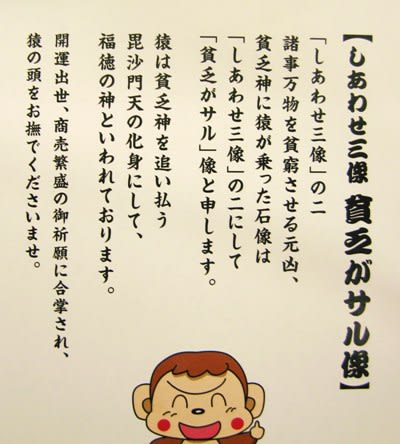 【しあわせ三像 貧乏がサル像】
「しあわせ三像」の二
諸事万物を貧窮させる元凶、
貧乏神に猿が乗った石像は
「しあわせ三像」の二にして
「貧乏がサル」像と申します。
猿は貧乏神を追い払う
毘沙門天の化身にして、
福徳の神といわれております。
開運出世、商売繁盛の御祈願に合掌され、
猿の頭をお撫でくださいませ。